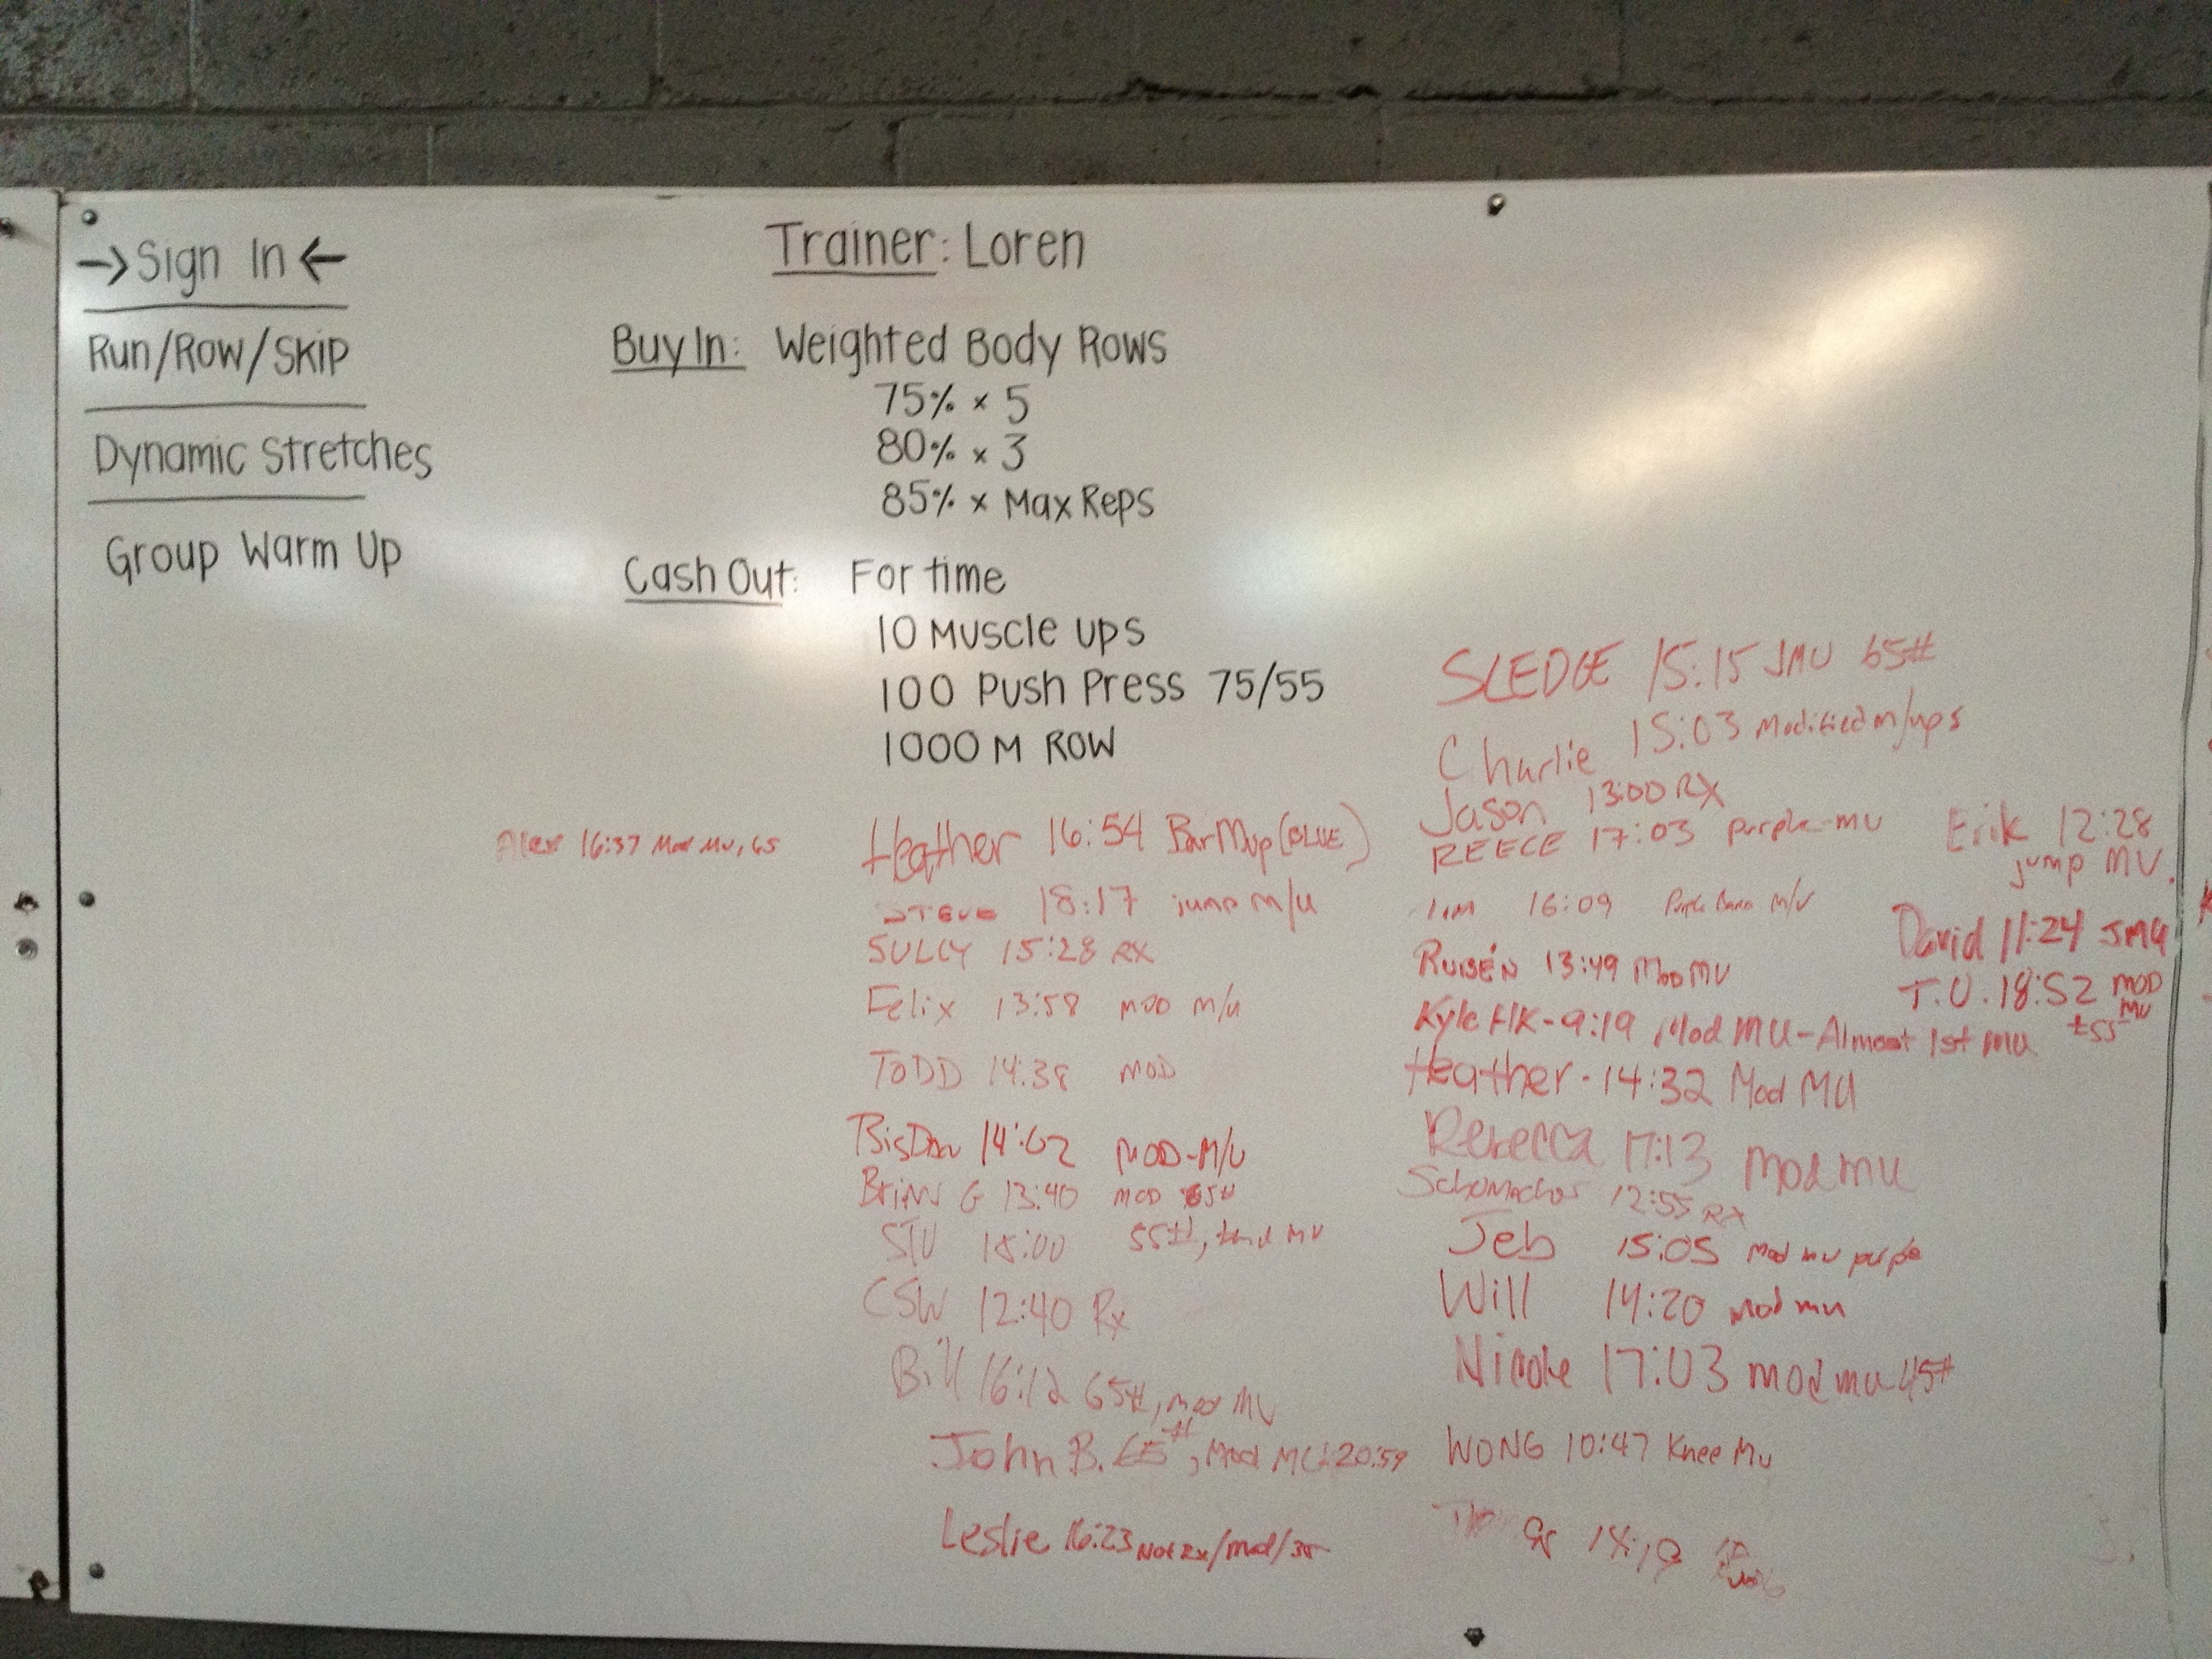 →Sign In←
Run/Row/Skip
Dynamic Stretches
Group Warm Up
Trainer: Loren
Buy In: Weighted Body Rows
75% x 5
80% x 3
85% x Max Reps
Cash Out: For time
10 Muscle Ups
100 Push Press 75/55
1000 M Row
Alex 16:37 Mod MU, 65
Heather 16:54 Bar Mup (BLUE)
STEVE 18:17 jump m/u
SULLY 15:28 RX
Felix 13:58 MOD m/u
TODD 14:38 MOD
14:02 MOD-M/U
G 13:40 MOD 65#
STU 18:00 55#, MU
CSW 12:40 Rx
Bill 16:12 65#, mod MU
John B. 65#, Mod MU: 20:59
Leslie 16:23 Not Rx/mod/35
SLEDGE 15:15 JMU 65#
Charlie 15:03 Modified m/ups
Jason 13:00 RX
REECE 17:03 purple-mu
16:09 M/U
RUBÉN 13:49 Mod MU
Kyle HK-9:19 Mod MU-Almost 1st mu
Heather-14:32 Mod MU
Rebecca 17:13 Mod mu
Schumacher 12:55 RX
Jeb 15:05 Mod mu purple
Will 14:20 mod mu
Nicole 17:03 mod mu 45#
WONG 10:47 Knee Mu
Erik 12:28
jump MU.
David 11:24 JMU
T.U. 18:52 MOD
MU